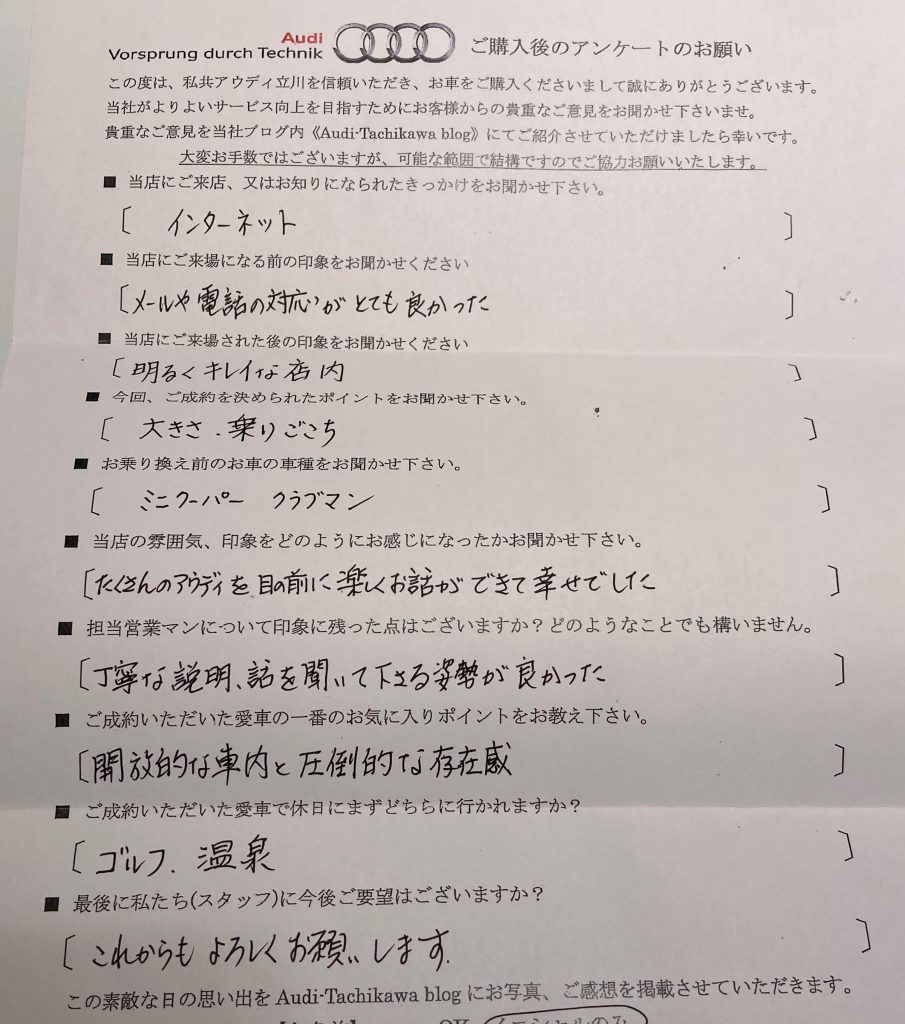 Audi
Vorsprung durch Technik
ご購入後のアンケートのお願い
この度は、私共アウディ立川を信頼いただき、お車をご購入くださいまして誠にありがとうございます。
当社がよりよいサービス向上を目指すためにお客様からの貴重なご意見をお聞かせ下さいませ。
貴重なご意見を当社ブログ内《Audi-Tachikawa blog》にてご紹介させていただけましたら幸いです。
大変お手数ではございますが、可能な範囲で結構ですのでご協力お願いいたします。
■ 当店にご来店、又はお知りになられたきっかけをお聞かせ下さい。
[ インターネット ]
■ 当店にご来場になる前の印象をお聞かせください
[メールや電話の対応がとても良かった ]
■ 当店にご来場された後の印象をお聞かせください
[ 明るくキレイな店内 ]
■ 今回、ご成約を決められたポイントをお聞かせ下さい。
[ 大きさ．乗りごこち ]
■ お乗り換え前のお車の車種をお聞かせ下さい。
[ ミニクーパー クラブマン ]
■ 当店の雰囲気、印象をどのようにお感じになったかお聞かせ下さい。
[たくさんのアウディを目の前に楽しくお話ができて幸せでした ]
■ 担当営業マンについて印象に残った点はございますか？どのようなことでも構いません。
[丁寧な説明、話を聞いて下さる姿勢が良かった ]
■ ご成約いただいた愛車の一番のお気に入りポイントをお教え下さい。
[開放的な車内と圧倒的な存在感 ]
■ ご成約いただいた愛車で休日にまずどちらに行かれますか？
[ ゴルフ．温泉 ]
■ 最後に私たち(スタッフ)に今後ご要望はございますか？
[ これからもよろしくお願いします. ]
この素敵な日の思い出を Audi-Tachikawa blog にお写真、ご感想を掲載させていただきます。
OK イニシャルのみ